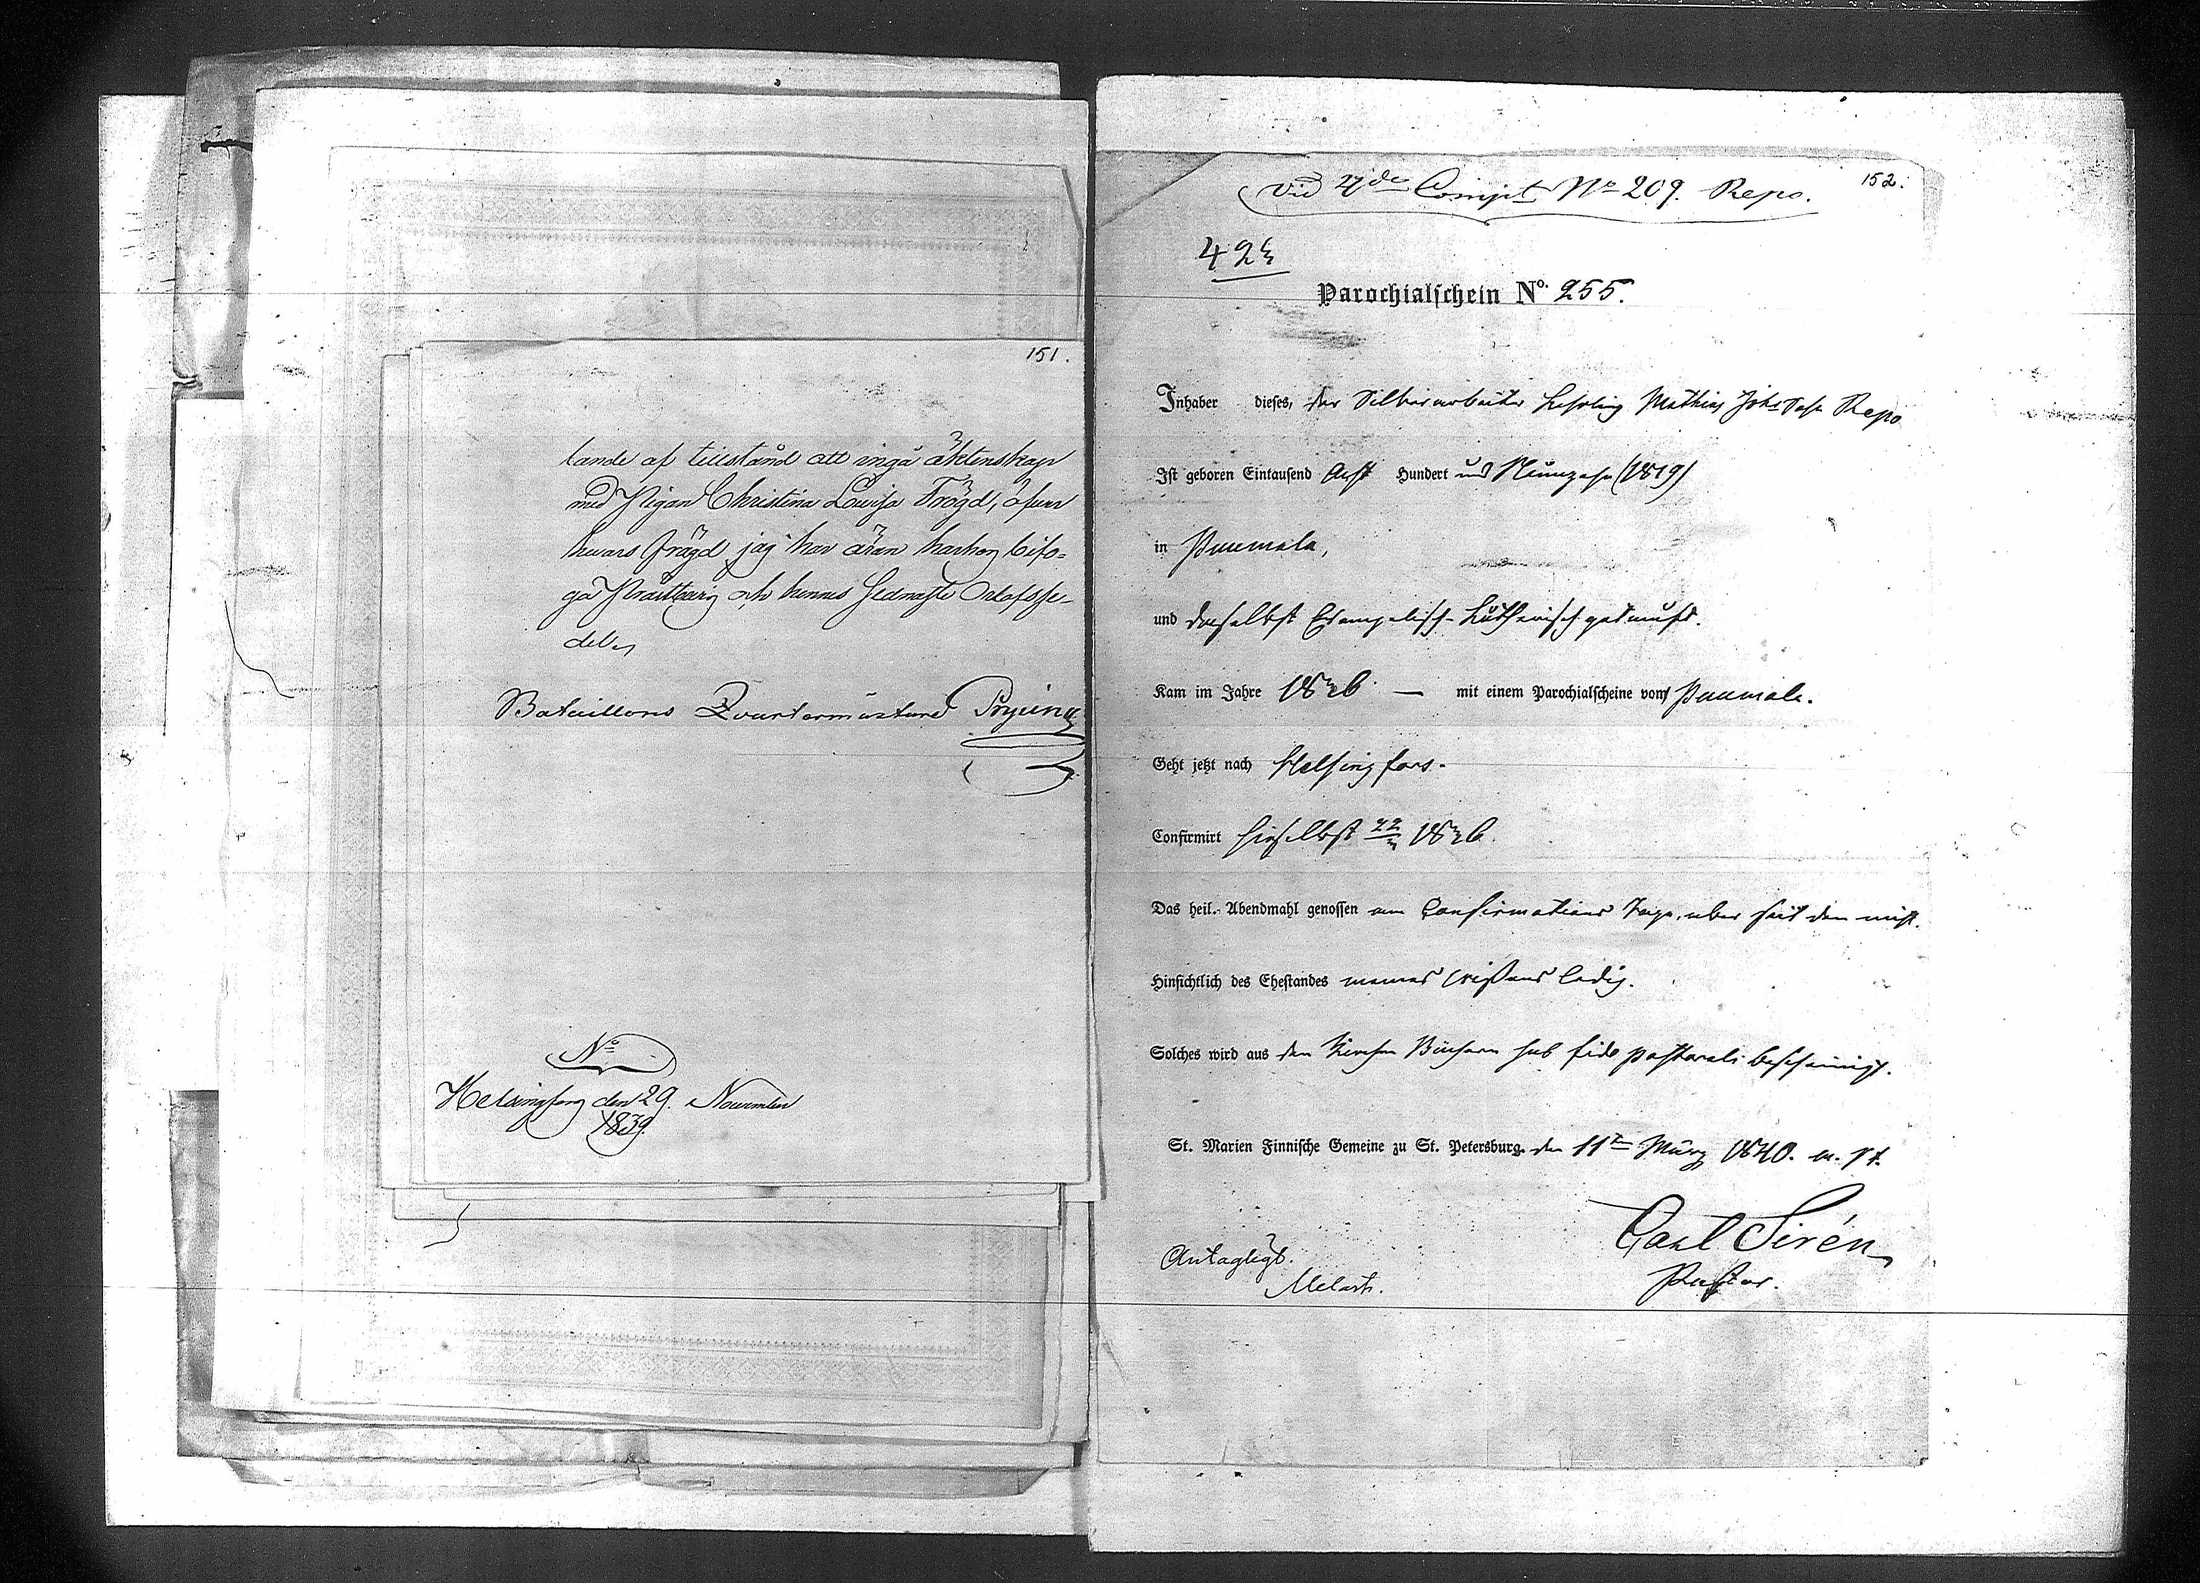 151.
tande af tillstånd att ingå äktenskap
med Pigan Christina Lovisa Frögd, öfver
hvars frägd jag har äran härhos bifo-
ga Prästbevis och hennes sednaste Orlofsse-
del.
Bataillons Quartermästare
No
Helsingfors den 29. November
1839.
152.
Vid Comp. No 209. Repo.
Parochialschein No. 255.
Inhaber dieses, der Silberarbeiter Lehrling Mathias Johs Sohn Repo
Ist geboren Eintausend Acht Hundert und Neunzehn (1819)
in Puumala,
und daselbst Evangelisch-Lutherisch getauft.
Kam im Jahre 1836 — mit einem Parochialscheine von Puumala.
Geht jetzt nach Helsingfors.
Confirmirt hieselbst 1836.
Das heil. Abendmahl genossen am Confirmations Tage, aber seit dem nicht.
Hinsichtlich des Ehestandes meines Wissens ledig.
Solches wird aus den Kirchen Büchern sub fide pastorali bescheinigt.
St. Marien Finnische Gemeine zu St. Petersburg. den 11ten März 1840. a. St.
Carl Sirén
Pastor.
Antagligt.
Melart.